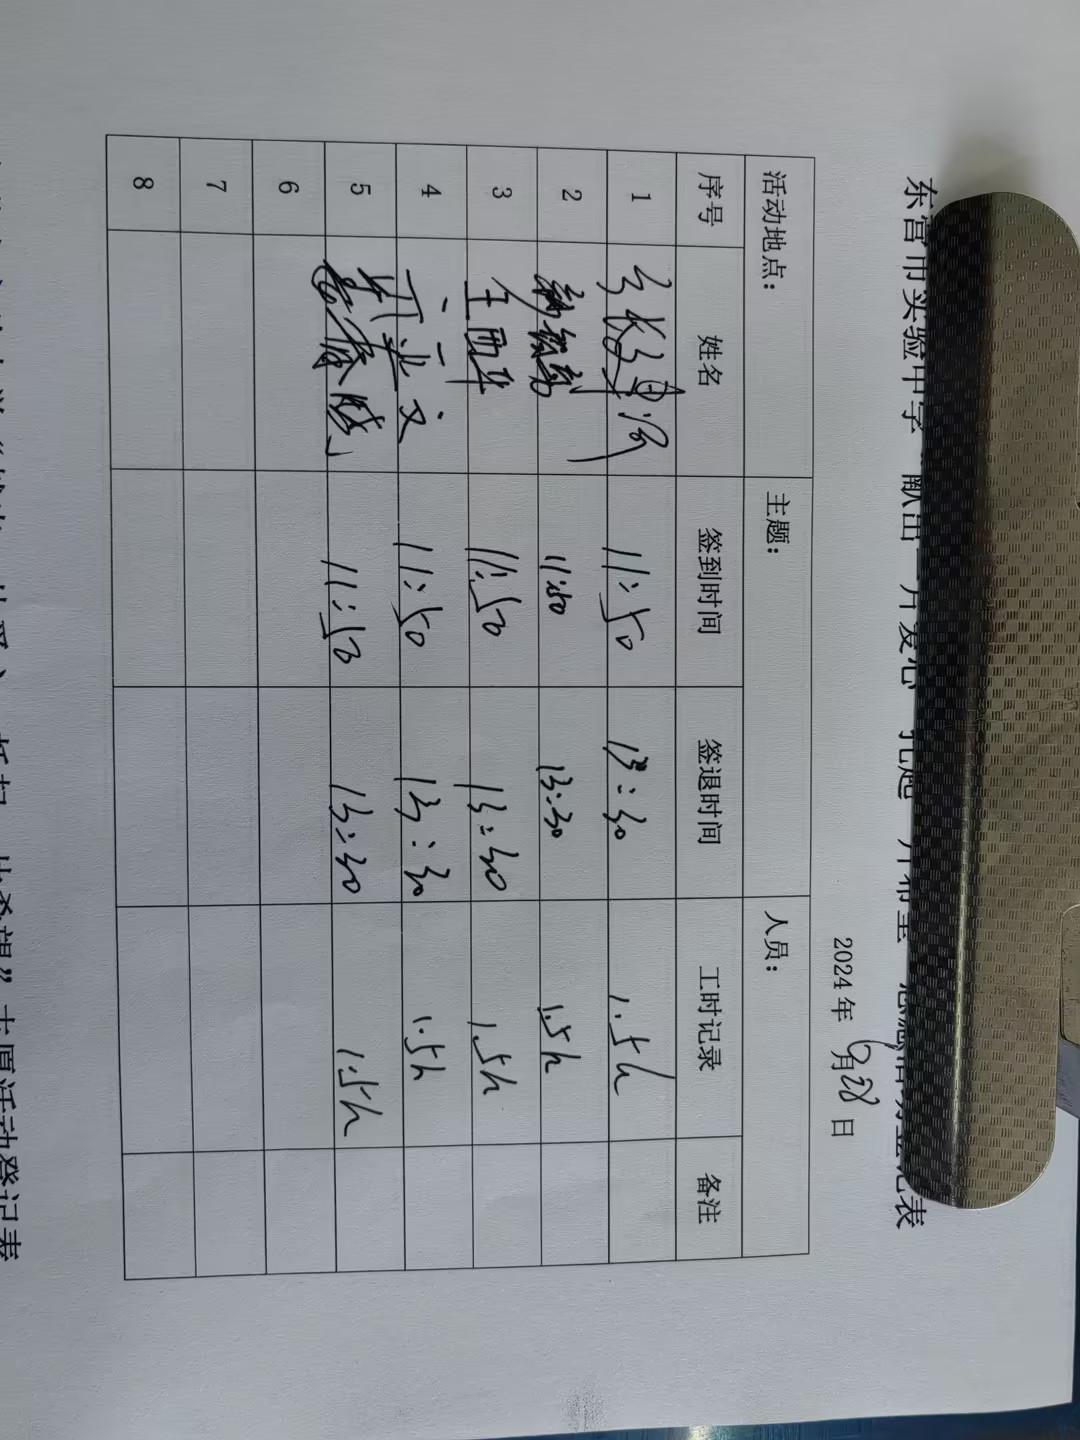 东营市实验中学“献出一片爱心 托起一片希望”志愿活动登记表
2024年6月28日
活动地点： 主题： 人员：
序号 姓名 签到时间 签退时间 工时记录 备注
1 11:50 13:30 1.5h
2 11:50 13:30 1.5h
3 王西华 11:50 13:30 1.5h
4 11:50 13:30 1.5h
5 11:50 13:30 1.5h
6
7
8
主题活动登记表